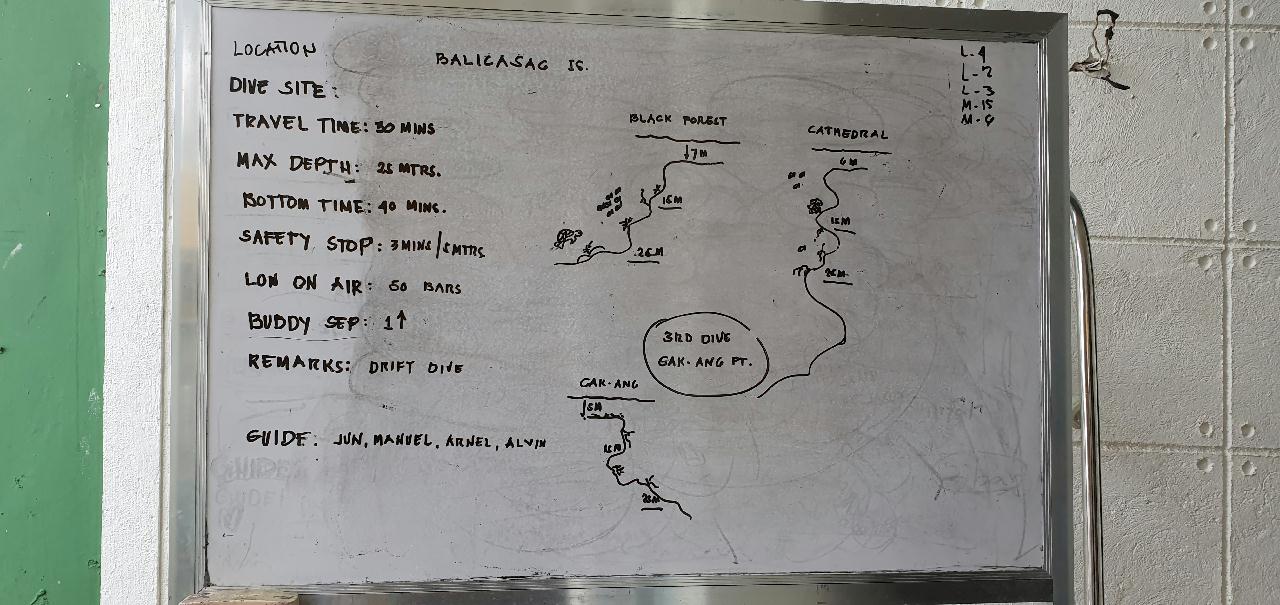 LOCATION BALICASAG IS.
DIVE SITE:
TRAVEL TIME: 30 MINS
MAX DEPTH: 25 MTRS.
BOTTOM TIME: 40 MINS.
SAFETY STOP: 3MINS/5MTRS
LOW ON AIR: 50 BARS
BUDDY SEP: 1↑
REMARKS: DRIFT DIVE
GUIDE: JUN, MANUEL, ARNEL, ALVIN
BLACK FOREST
↓7M
15M
25M
CATHEDRAL
6M
15M
25M
3RD DIVE
GAK-ANG PT.
GAK-ANG
↓5M
15M
25M
L-4
L-2
L-3
M-15